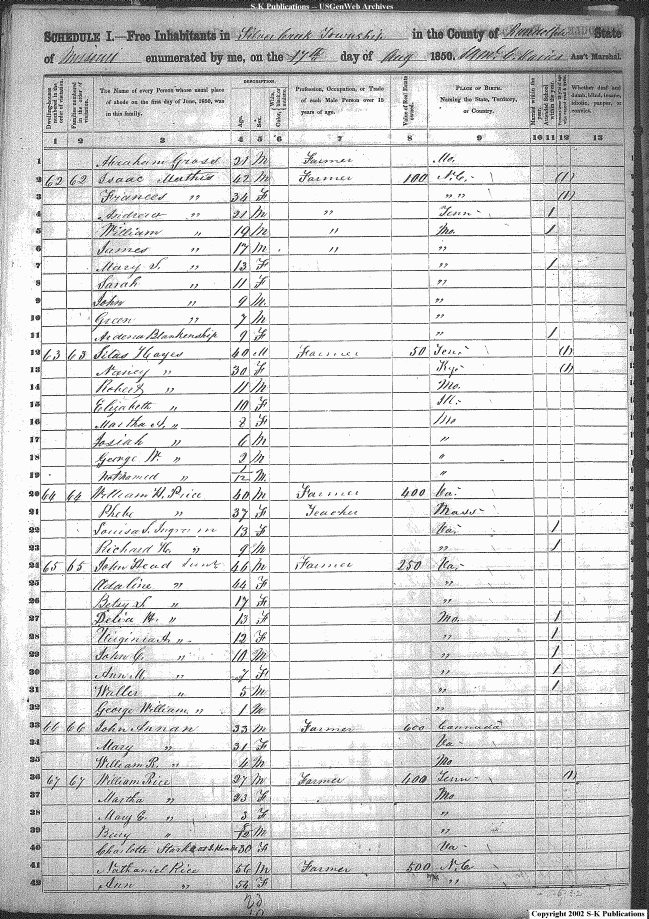 S-K Publications -- USGenWeb Archives
SCHEDULE I.—Free Inhabitants in Silver Creek Township in the County of Randolph State
of Missouri enumerated by me, on the 17th day of Aug 1850. Ass't Marshal.
DESCRIPTION.
Dwelling-houses numbered in the order of visitation.
Families numbered in the order of visitation.
The Name of every Person whose usual place of abode on the first day of June, 1850, was in this family.
Age.
Sex.
Color, White, black, or mulatto.
Profession, Occupation, or Trade of each Male Person over 15 years of age.
Value of Real Estate owned.
PLACE OF BIRTH.
Naming the State, Territory, or Country.
Married within the year.
Attended School within the year.
Whether deaf and dumb, blind, insane, idiotic, pauper, or convict.
1 2 3 4 5 6 7 8 9 10 11 12 13
1 Abraham Gross 21 M Farmer Mo.
2 62 62 Isaac Mathis 42 M Farmer 100 N.C. (1)
3 Frances " 34 F " " (1)
4 Andrew " 21 M " Tenn 1
5 William " 19 M " Mo. 1
6 James " 17 M " "
7 Mary S. " 13 F " 1
8 Sarah " 11 F "
9 John " 9 M "
10 Green " 7 M "
11 Blankenship 9 F " 1
12 63 63 Silas Hayes 40 M Farmer 50 Ten. (1)
13 Nancy " 30 F Ky. (1)
14 Robert " 11 M Mo.
15 Elizabeth " 10 F Ill.
16 Martha A. " 8 F Mo
17 Josiah " 6 M "
18 George W. " 2 M "
19 Not Named " 1/12 M "
20 64 64 William H. Price 40 M Farmer 400 Va.
21 Phebe " 37 F Teacher Mass
22 Louisa S. Ingram 13 F Va. 1
23 Richard H. " 9 M " 1
24 65 65 John Head 46 M Farmer 250 Va.
25 Adaline " 44 F "
26 Betsy S. " 17 F "
27 Delia H. " 13 F Mo. 1
28 Virginia A. " 12 F " 1
29 John C. " 10 M " 1
30 Ann M. " 7 F " 1
31 Waller " 5 M " 1
32 George William " 1 M "
33 66 66 John Annan 33 M Farmer 600 Cannada
34 Mary " 31 F Va
35 William R. " 4 M Mo
36 67 67 William Rice 27 M Farmer 400 Tenn (1)
37 Martha " 23 F Mo
38 Mary E. " 3 F "
39 Berry " M "
40 Charlotte Stark 30 F Va
41 Nathaniel Rice 56 M Farmer 500 N.C
42 Ann " 54 F "
Copyright 2002 S-K Publications